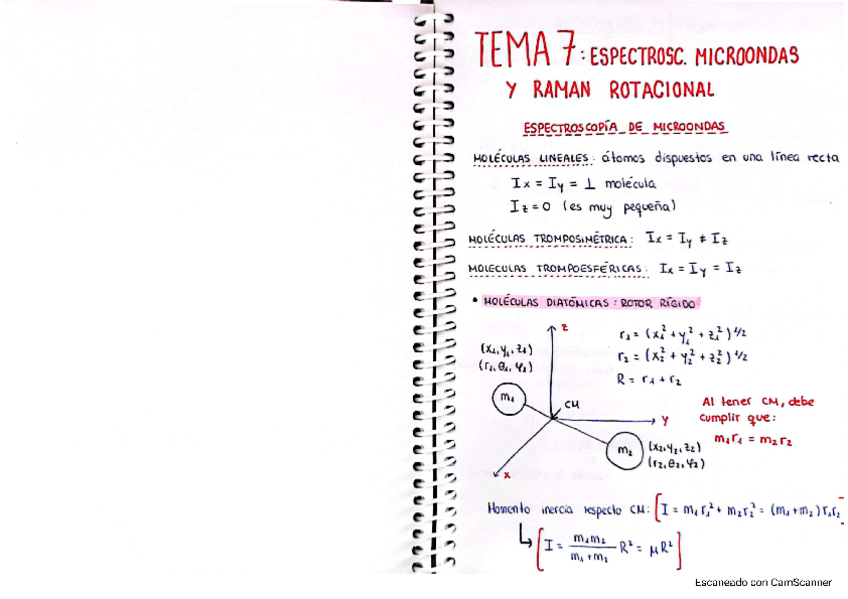 TEMA 7: ESPECTROSC. MICROONDAS
Y RAMAN ROTACIONAL
ESPECTROSCOPÍA DE MICROONDAS
MOLÉCULAS LINEALES: átomos dispuestos en una línea recta
Ix = Iy = ⊥ molécula
Iz = 0 (es muy pequeña)
MOLÉCULAS TROMPOSIMÉTRICA: Ix = Iy ≠ Iz
MOLECULAS TROMPOESFÉRICAS: Ix = Iy = Iz
• MOLÉCULAS DIATÓMICAS: ROTOR RÍGIDO
z
(x₁, y₁, z₁)
(r₁, θ₁, φ₁)
m₁
CM
y
x
m₂
(x₂, y₂, z₂)
(r₂, θ₂, φ₂)
r₁ = (x₁² + y₁² + z₁²)^1/2
r₂ = (x₂² + y₂² + z₂²)^1/2
R = r₁ + r₂
Al tener CM, debe
cumplir que:
m₁r₁ = m₂r₂
Momento inercia respecto CM: [I = m₁r₁² + m₂r₂² = (m₁+m₂)r₁r₂
↳ [I = m₁m₂/(m₁+m₂) R² = μR²]
Escaneado con CamScanner